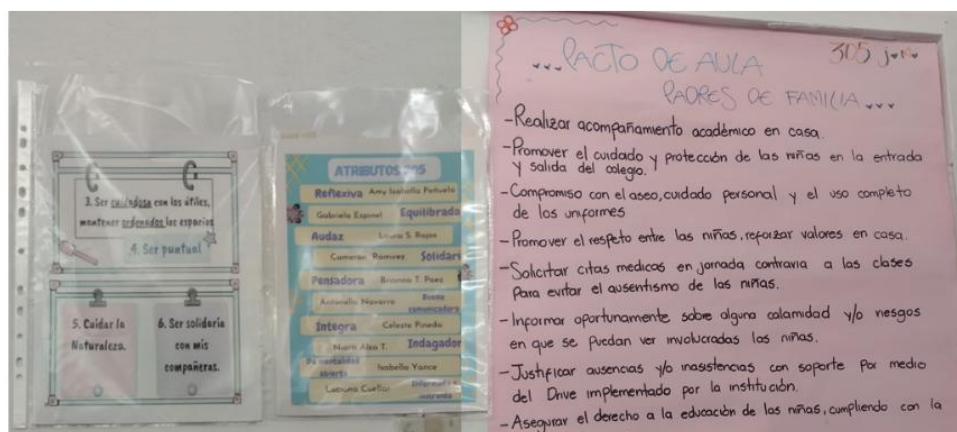 3. Ser cuidadosa con los útiles,
mantener ordenados los espacios
4. Ser puntual
5. Cuidar la
Naturaleza.
6. Ser solidaria
con mis
compañeras.
ATRIBUTOS 305
Reflexiva Amy Isabella Peñuela
Gabriela Espinel Equilibrada
Audaz Laura S. Rojas
Cameron Ramirez Solidari
Pensadora Brianna T. Paez
Antonella Navarro Buena
comunicadora
Integra Celeste Pinedo
Alea T. Indagador
De mentalidad
abierta Isabella Yance
Luciana Cuellar Informada e
instruida
...PACTO DE AULA 305 j.m.
PADRES DE FAMILIA...
-Realizar acompañamiento académico en casa.
-Promover el cuidado y protección de las niñas en la entrada
y salida del colegio.
-Compromiso con el aseo, cuidado personal y el uso completo
de los uniformes
-Promover el respeto entre las niñas, reforzar valores en casa.
-Solicitar citas medicas en jornada contraria a las clases
para evitar el ausentismo de las niñas.
-Informar oportunamente sobre alguna calamidad y/o riesgos
en que se puedan ver involucradas las niñas.
-Justificar ausencias y/o inasistencias con soporte por medio
del Drive implementado por la institución.
-Asegurar el derecho a la educación de las niñas, cumpliendo con la